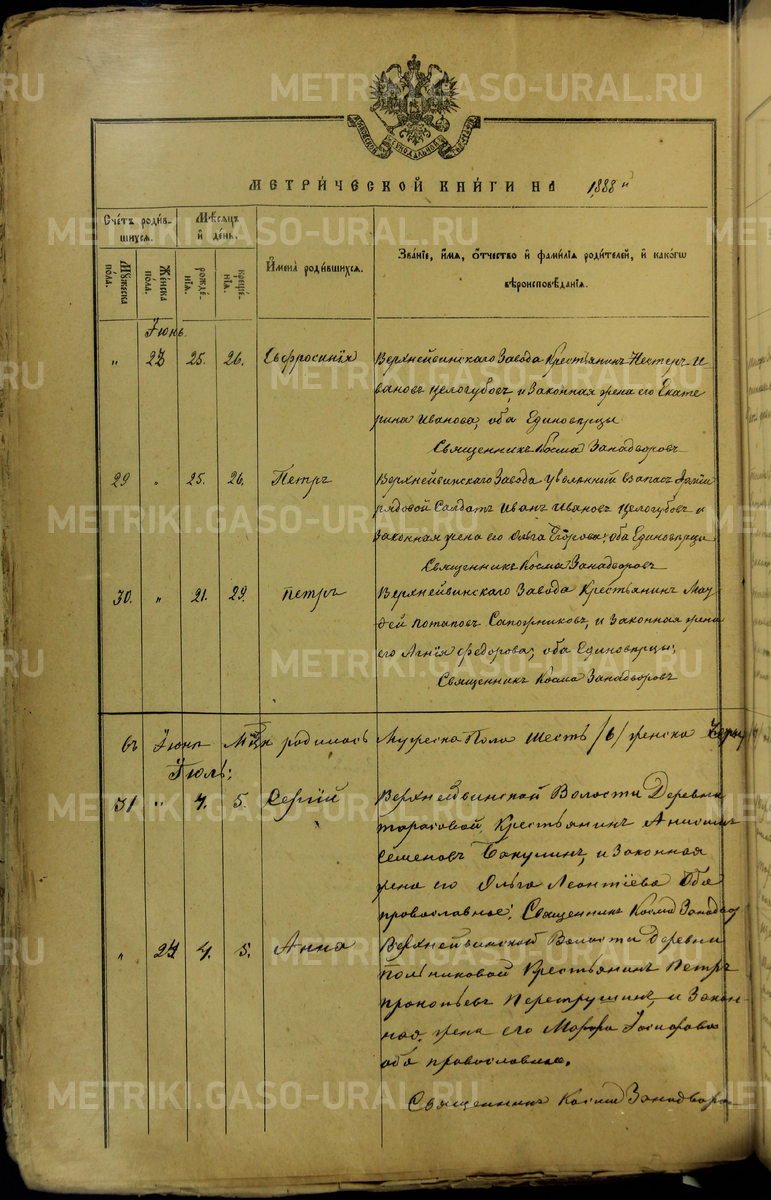 METRIKI.GASO-URAL.RU
МЕТРИ́ЧЕСКОЙ КНИ́ГИ НА 1888 й
Сче́тъ роди́в-
шихся.
Мѣ́сяцъ
и́ де́нь.
И҆мена̀ роди́вшихся.
Зва́нїе, и҆́мя, о҆́тчество и҆ фами́лїя роди́телей, и҆ како́гѡ
вѣроисповѣ́данїя.
Мꙋ́жеска
по́ла.
Же́нска
по́ла.
рожде́-
нїя.
креще́-
нїя.
Іюнь
" 23 25. 26. Евфросинія Верхнейвинскаго Завода Крестьянинъ Нестеръ И
вановъ Целогубовъ, и Законная жена его Екате
рина Иванова, оба Единовѣрцы
Священникъ Косма Занадворовъ
29 " 25. 26. Петръ Верхнейвинскаго Завода уволенный въ запасъ Арміи
рядовой Солдатъ Иванъ Ивановъ Целогубовъ и
Законная жена его Ольга Егорова; оба Единовѣрцы
Священникъ Косма Занадворовъ
30. " 21. 29. Петръ Верхнейвинскаго Завода Крестьянинъ
Потаповъ Сапожниковъ, и Законная жена
его Агнія Федорова; оба Единовѣрцы;
Священникъ Косма Занадворовъ
Въ Іюнѣ М-цѣ родилось Мужеска Пола Шесть /6/ женска
Іюль:
31 " 4. 5. Сергій Верхнейвинской Волости Деревни
Тарасовой Крестьянинъ
Семеновъ Бакулинъ, и Законная
жена его Ольга Леонтіева Оба
православные; Священникъ Косма Занадвор
" 24 4. 5. Анна Верхнейвинской Волости Деревни
Крестьянинъ Петръ
Прокопьевъ Перетрушинъ, и Закон-
ная жена его Марфа
оба православные.
Священникъ Косма Занадворо